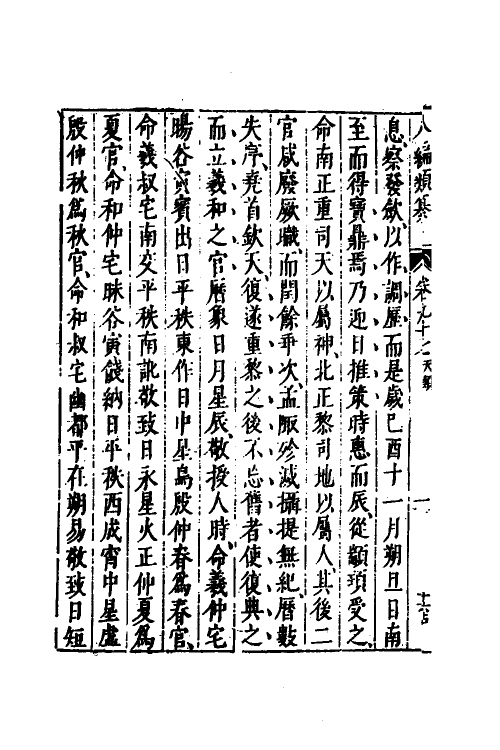 八編類纂 卷九十七 天類
息察發斂以作調歷而是歲巳酉十一月朔旦日南
至而得寶鼎焉乃迎日推策時惠而辰從顓頊受之
命南正重司天以屬神北正黎司地以屬人其後二
官咸廢厥職而閏餘乖次孟陬殄滅攝提無紀曆數
失序堯首欽天復遂重黎之後不忘舊者使復典之
而立羲和之官曆象日月星辰敬授人時命羲仲宅
暘谷寅賓出日平秩東作日中星鳥殷仲春爲春官
命羲叔宅南交平秩南訛敬致日永星火正仲夏爲
夏官命和仲宅昧谷寅餞納日平秩西成宵中星虛
殷仲秋爲秋官命和叔宅幽都平在朔易敬致日短